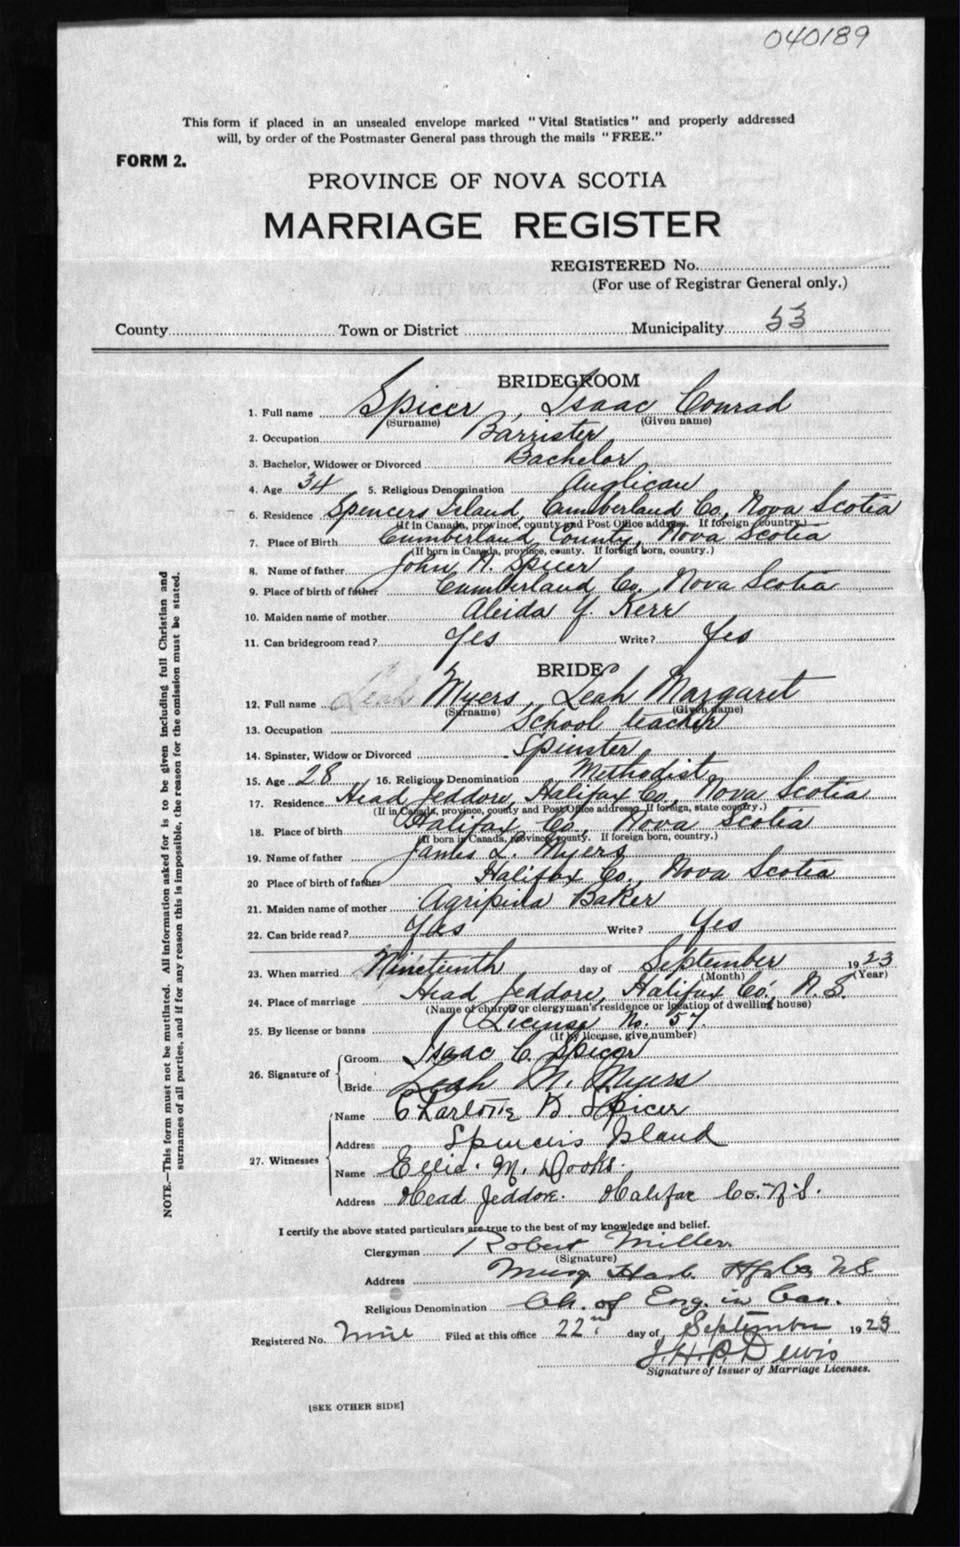 040189
This form if placed in an unsealed envelope marked "Vital Statistics" and properly addressed
will, by order of the Postmaster General pass through the mails "FREE."
FORM 2.
PROVINCE OF NOVA SCOTIA
MARRIAGE REGISTER
REGISTERED No.
(For use of Registrar General only.)
County Town or District Municipality 53
BRIDEGROOM
1. Full name Spicer, Isaac Conrad
(Surname) (Given name)
2. Occupation Barrister
3. Bachelor, Widower or Divorced Bachelor
4. Age 34 5. Religious Denomination Anglican
6. Residence Spencers Island, Cumberland Co, Nova Scotia
(If in Canada, province, county and Post Office address. If foreign country.)
7. Place of Birth Cumberland County, Nova Scotia
(If born in Canada, province, county. If foreign born, country.)
8. Name of father John H. Spicer
9. Place of birth of father Cumberland Co. Nova Scotia
10. Maiden name of mother Aleida Y. Kerr
11. Can bridegroom read? Yes Write? Yes
BRIDE
12. Full name Leah Myers, Leah Margaret
(Surname) (Given name)
13. Occupation School teacher
14. Spinster, Widow or Divorced Spinster
15. Age 28 16. Religious Denomination Methodist
17. Residence Head Jeddore, Halifax Co, Nova Scotia
(If in Canada, province, county and Post Office address. If foreign, state country.)
18. Place of birth Halifax Co, Nova Scotia
(If born in Canada, Province, county. If foreign born, country.)
19. Name of father James L. Myers
20 Place of birth of father Halifax Co., Nova Scotia
21. Maiden name of mother Agripina Baker
22. Can bride read? Yes Write? Yes
23. When married Nineteenth day of September 1923
(Month) (Year)
24. Place of marriage Head Jeddore, Halifax Co., N.S.
(Name of church or clergyman's residence or location of dwelling house)
25. By license or banns License No. 57.
(If by license, give number)
26. Signature of Groom Isaac C. Spicer
Bride Leah M. Myers
27. Witnesses Name Charlotte B. Spicer
Address Spencers Island
Name Ellie M. Dooks.
Address Head Jeddore. Halifax Co. N.S.
I certify the above stated particulars are true to the best of my knowledge and belief.
Clergyman Robert Miller
(Signature)
Address Musq Harb. Hfx Co, N.S.
Religious Denomination Ch. of Eng. in Can.
Registered No. Nine Filed at this office 22nd day of September 1923
Signature of Issuer of Marriage Licenses.
[SEE OTHER SIDE]
NOTE.—This form must not be mutilated. All information asked for is to be given including full Christian and
surnames of all parties, and if for any reason this is impossible, the reason for the omission must be stated.